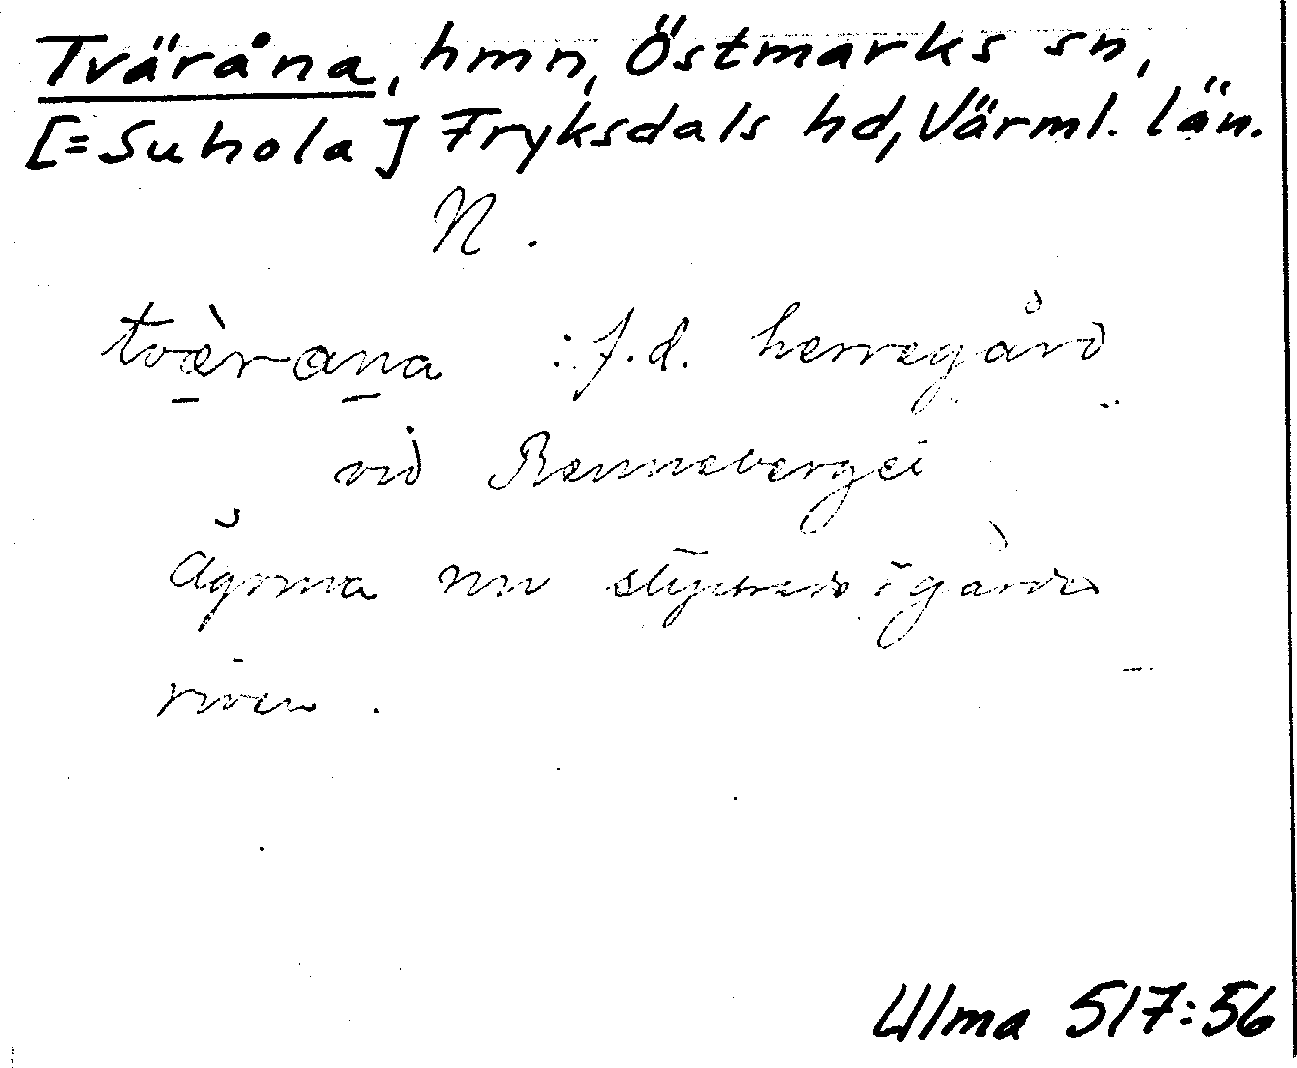 Tväråna, hmn, Östmarks sn,
[=Suhola] Fryksdals hd, Värml. län.
N.
tvæ̀rana : f.d. herregård
vid Rennebergei
Ägorna nu styckade i gårde
riven.
Ulma 517:56